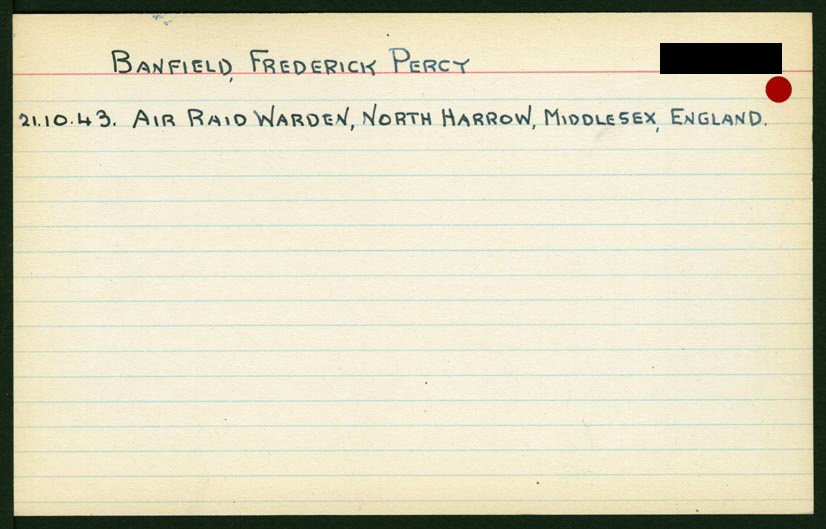 BANFIELD, FREDERICK PERCY
21.10.43. AIR RAID WARDEN, NORTH HARROW, MIDDLESEX, ENGLAND.